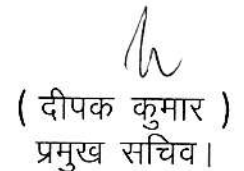 ( दीपक कुमार )
प्रमुख सचिव।